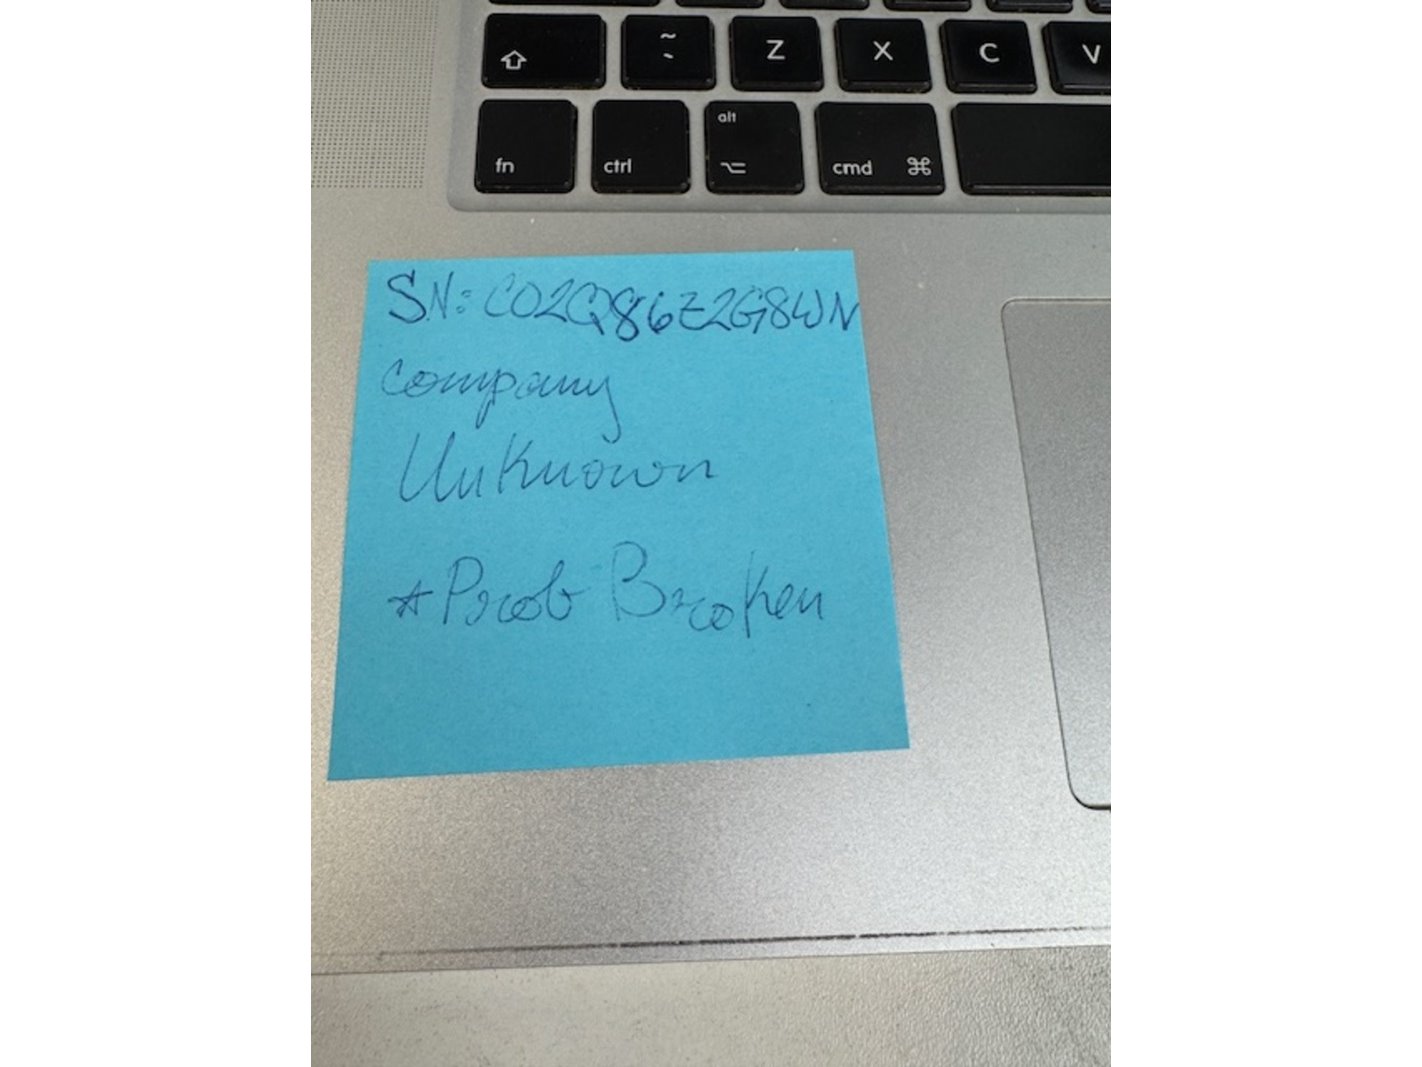 ~
` Z X C V
fn ctrl alt cmd ⌘
SN: C02Q86Z2G8WN
Company
Unknown
*Prob Broken